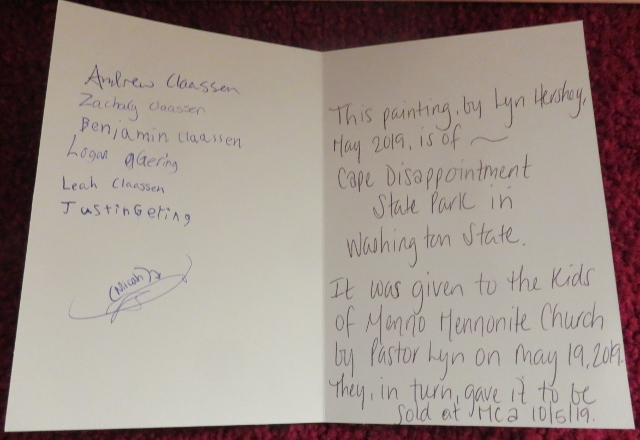 Andrew Claassen
Zachary Claassen
Benjamin Claassen
Logan Gering
Leah Claassen
Justin Gering
(Micah)
This painting, by Lyn Hershey,
May 2019, is of ~
Cape Disappointment
State Park in
Washington State.
It was given to the kids
of Menno Mennonite Church
by Pastor Lyn on May 19, 2019.
They, in turn, gave it to be
sold at MC2 10/5/19.